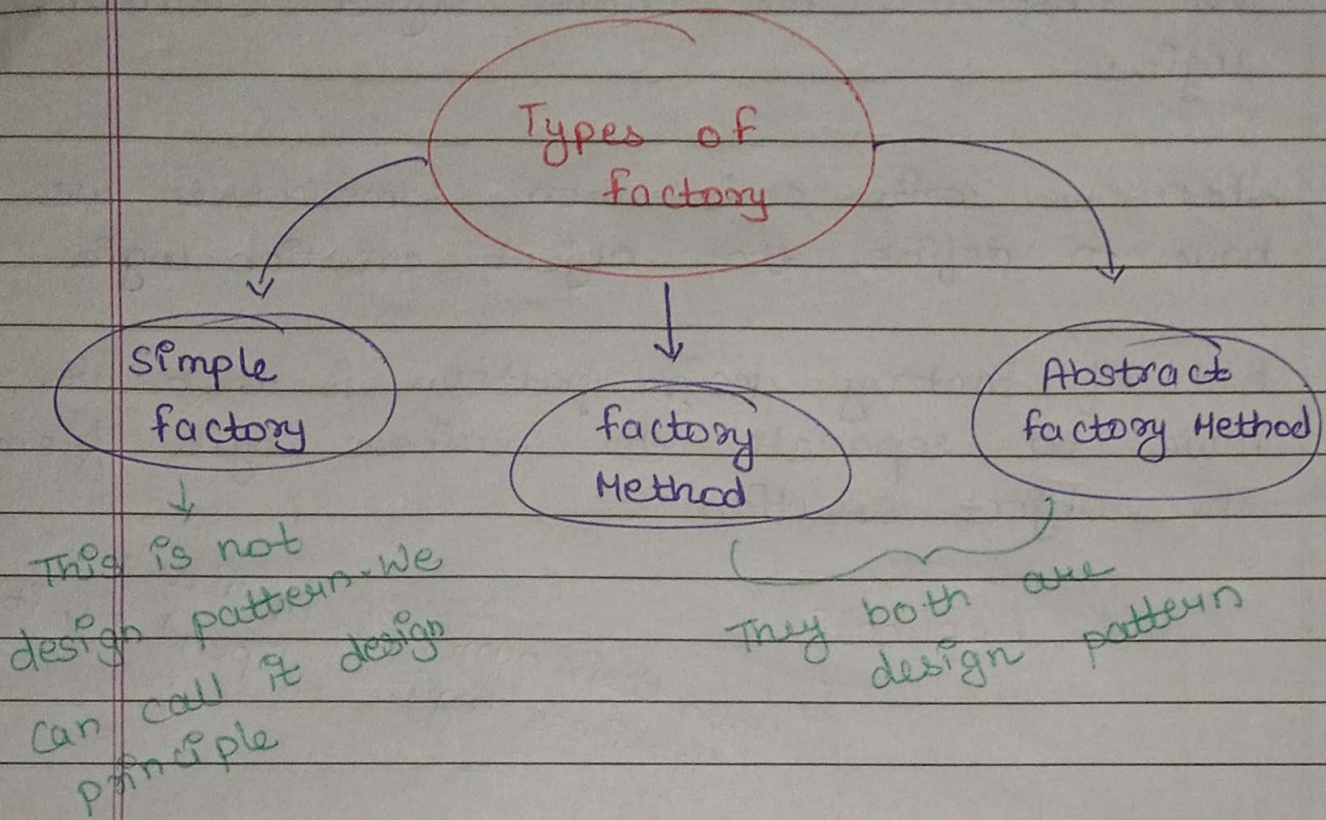 Types of
factory
Simple
factory
factory
Method
Abstract
factory Method
This is not
design pattern. We
can call it design
principle
They both are
design pattern